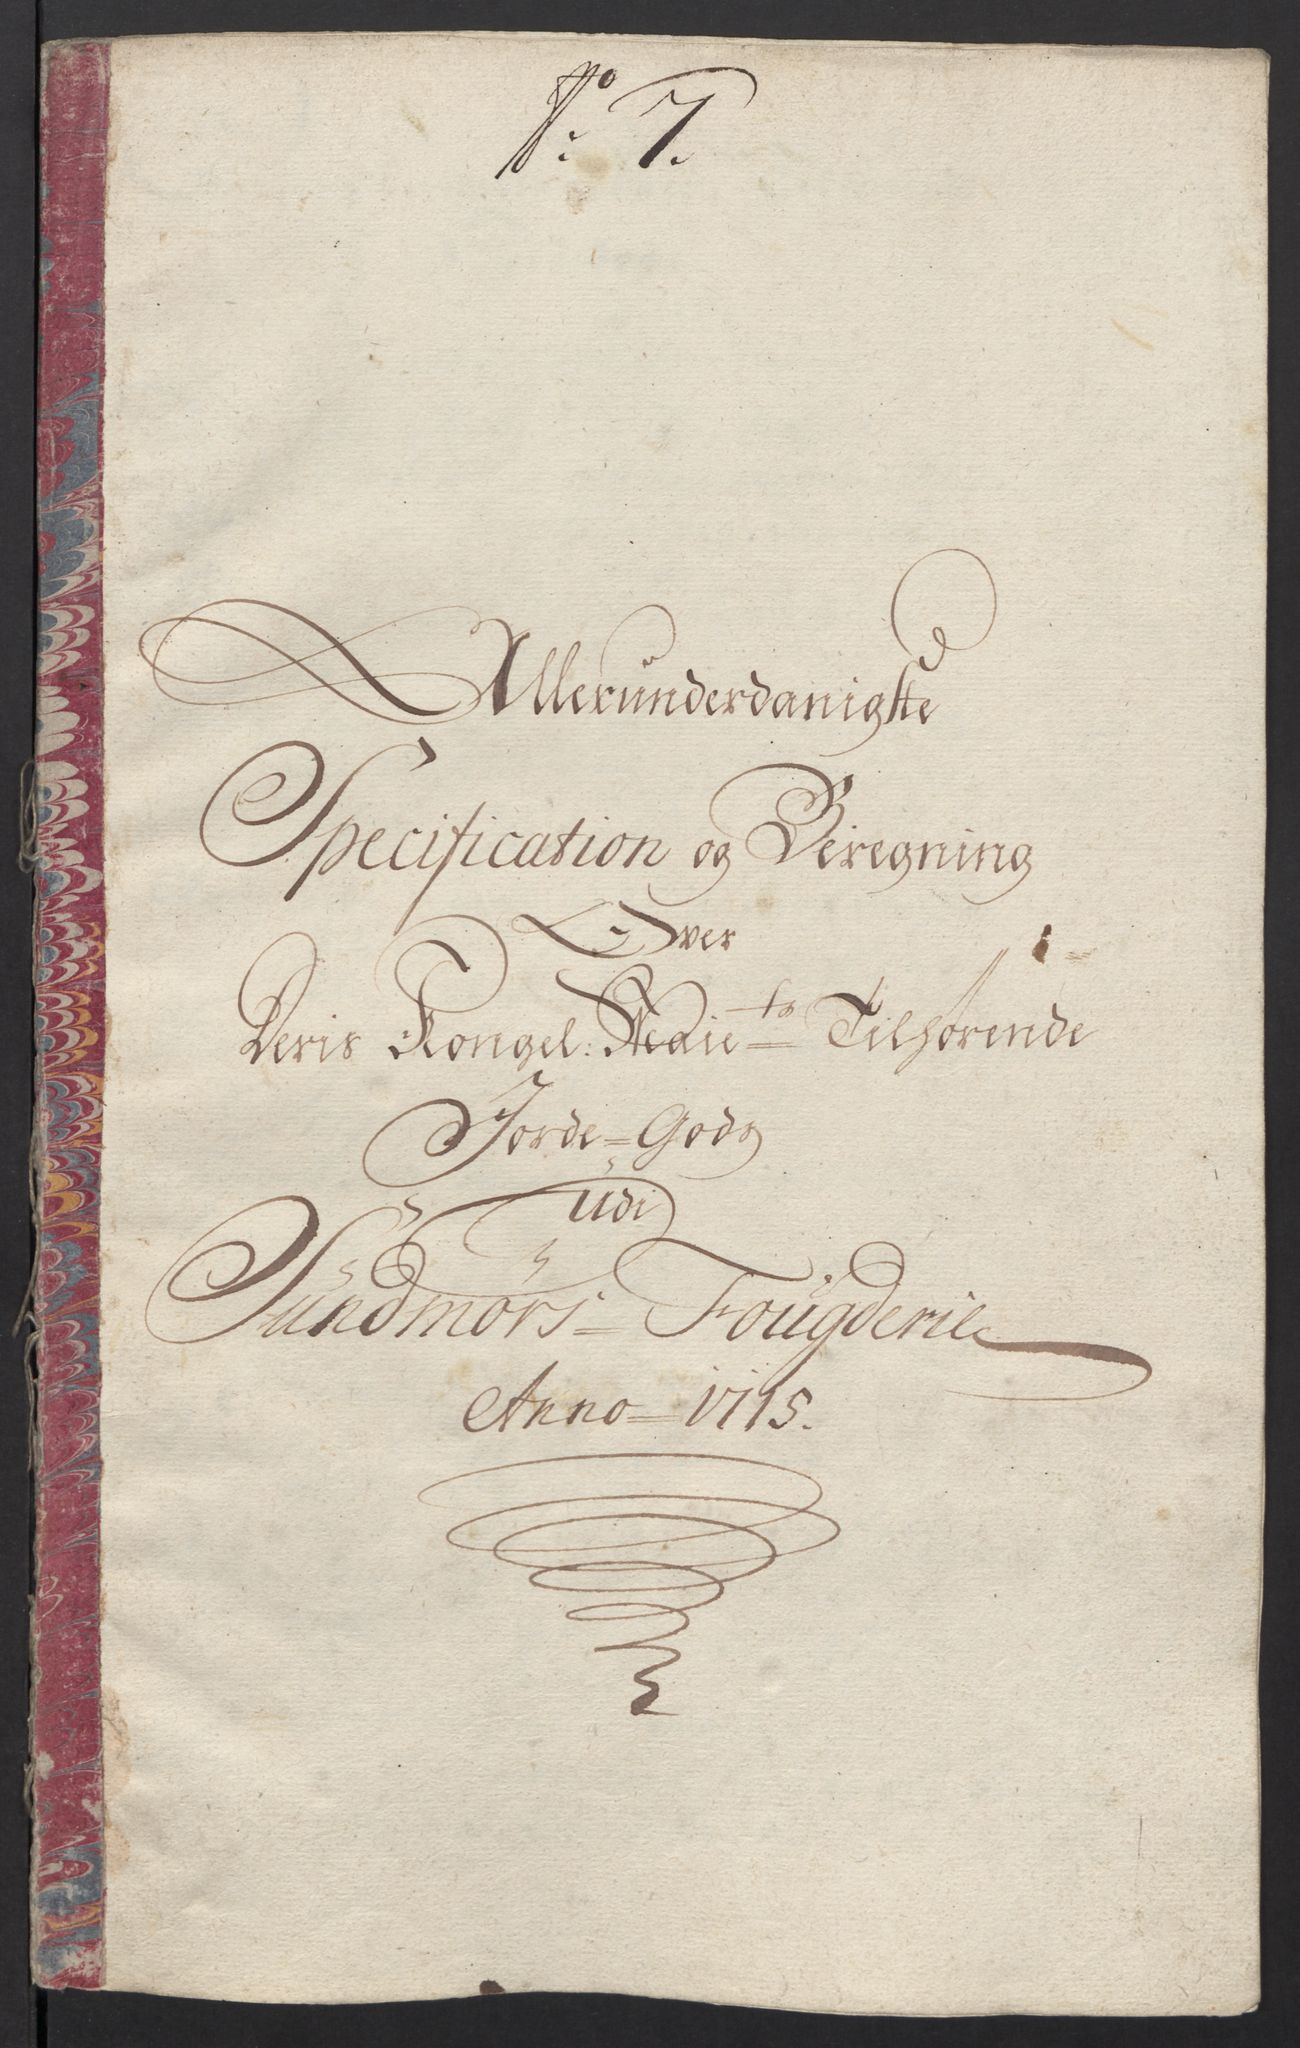 No: 7.
Allerunderdanigste
Specification og Beregning
Over
Deris Kongel: Maiets Tilhørende
Jorde-Gods
udi
Sundmørs Fougderie
Anno 1715.